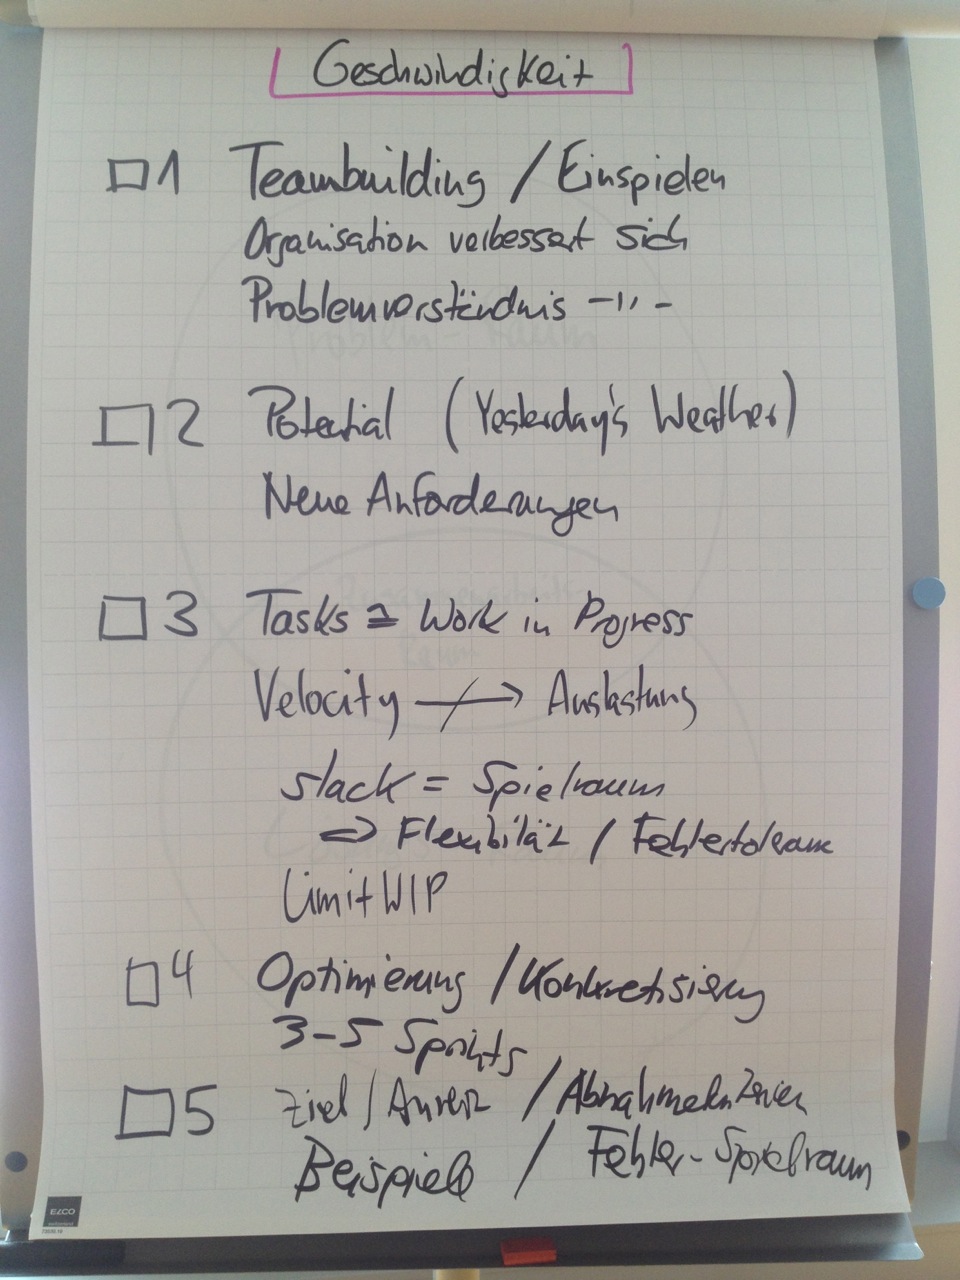 Geschwindigkeit
1 Teambuilding / Einspielen
Organisation verbessert sich
Problemverständnis -"-
2 Potential (Yesterday's Weather)
Neue Anforderungen
3 Tasks ≙ Work in Progress
Velocity ↛ Auslastung
slack = Spielraum
⇒ Flexibilität / Fehlertoleranz
Limit WIP
4 Optimierung / Konkretisierung
3-5 Sprints
5 Ziel / Anreiz / Abnahmekriterien
Beispiele / Fehler-Spielraum
ELCO